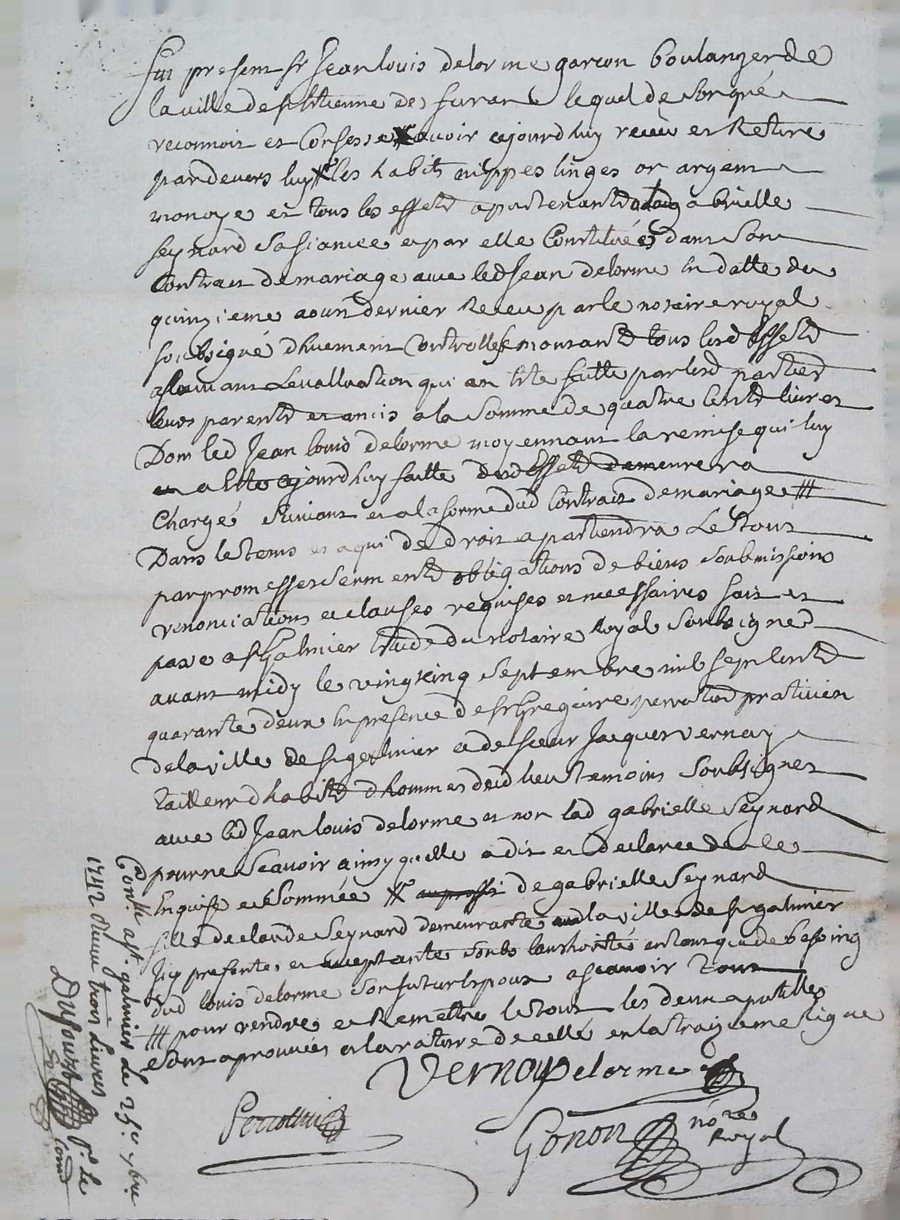 fut present Sr Jean Louis delorme garcon boulanger de
la ville de St Etienne de furan lequel de son gré
reconnoit et Confesse avoir ajourdhuy receu et Retiré
pardevers luy les habits nippes linges or argent
monoye et tous les effetd apartenantd a gabrielle
seynard sa fiancee et par elle Constitués dans son
Contrat de mariage avec led Jean delorme en datte du
quinzieme aoust dernier Receu par le notaire royal
soubsigné dhuement Controllé montant tous lesd effetd
suivant levalluation qui an a été faitte par lesd partied
leurs parentd et amis a la somme de quatre centd livres
Dont led Jean Louis delorme moyennant la remise qui luy
en a été ajourdhuy faitte desd effetd demeurera
Chargé suivant et a la forme dud Contrat de mariage #
Dans le tems et a qui de droit apartiendra Le tout
par promesses sermentd obligations de biens soubmissions
renonciations et clauses requises et necessaires fait et
passé a St Galmier Etude du notaire Royal soubsigné
avant midy le vingt cinq septembre mil sept centd
quarante deux en presence de Sr Gregoire perrotin praticien
de la ville de St galmier et de sieur Jacques vernay
tailleur dhabitd dhommes dud lieu temoins soubsignes
avec led Jean Louis delorme et non lad gabrielle seynard
pour ne scavoir ainsy quelle a dit et declaré de ce
Enquise et sommée # de gabrielle seynard
fille de claude seynard demeurante en la ville de St galmier
Icy presente et acceptante soubs lauthorité entant que de besoing
dud louis delorme son futur Epoux a scavoir tous
# pour rendre et Remettre le tout les deux apostilles
sont aprouvées et la rature de celle en la troizieme ligne
Vernay Delorme
Perrotin
Gonon nore Royal
Conllé a St galmier le 25e 7bre
1742 Receu trois Livres
Dufour pr le Comis